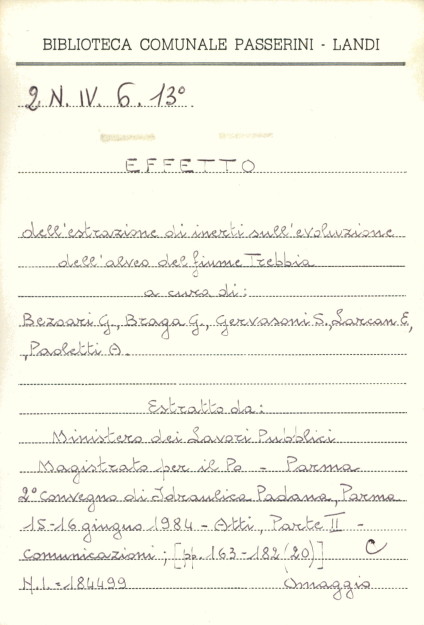 BIBLIOTECA COMUNALE PASSERINI - LANDI
2 N. IV. 6. 13°
EFFETTO
dell'estrazione di inerti sull'evoluzione
dell'alveo del fiume Trebbia
a cura di:
Bezoari G., Braga G., Gervasoni S., Larcan E.,
,Paoletti A.
Estratto da:
Ministero dei Lavori Pubblici
Magistrato per il Po - Parma
2° Convegno di Idraulica Padana, Parma
15-16 giugno 1984 - Atti, Parte II -
Comunicazioni; [pp. 163-182 (20)] C
N.I.=184499 Omaggio